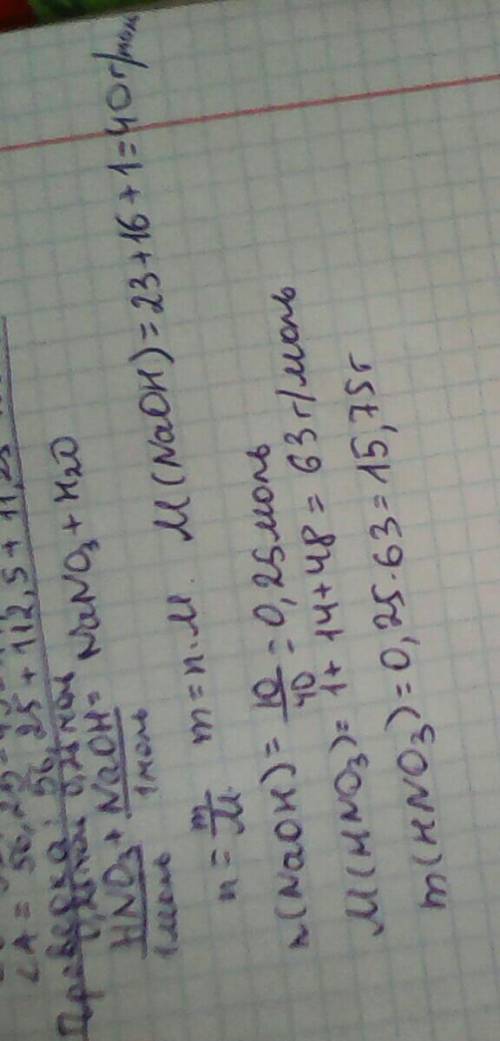 ∠A = 56,25
Проверка: 56,25 + 112,5 + 11,25
0,25 мол 0,25 мол
HNO₃ + NaOH = NaNO₃ + H₂O
1 моль 1 моль
n = m/M. m = n·M. M(NaOH) = 23 + 16 + 1 = 40 г/мол
n(NaOH) = 10/40 = 0,25 моль
M(HNO₃) = 1 + 14 + 48 = 63 г/моль
m(HNO₃) = 0,25·63 = 15,75 г